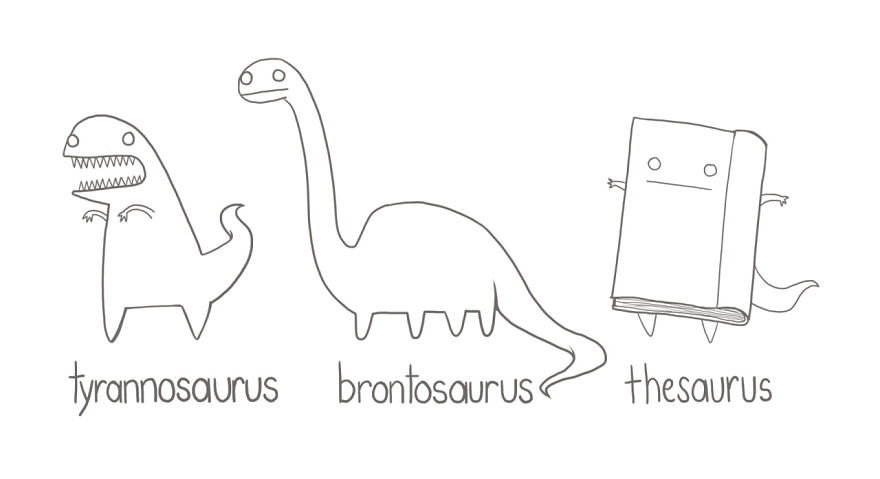 tyrannosaurus brontosaurus thesaurus